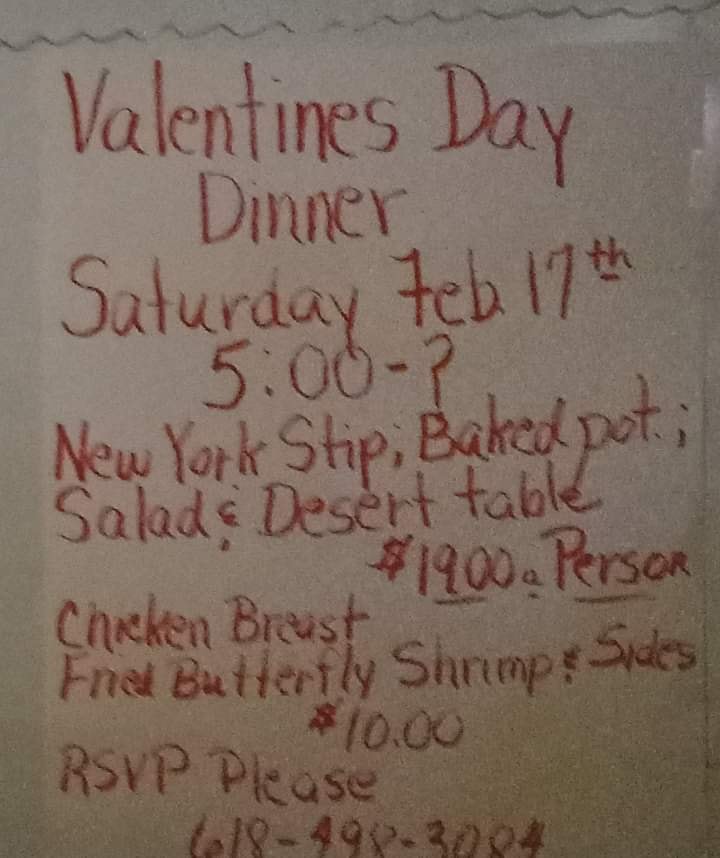 Valentines Day
Dinner
Saturday Feb 17th
5:00-?
New York Stip; Baked pot.;
Salad & Desert table
$19.00 a Person
Chicken Breast
Fried Butterfly Shrimp & Sides
$10.00
RSVP Please
618-498-3084